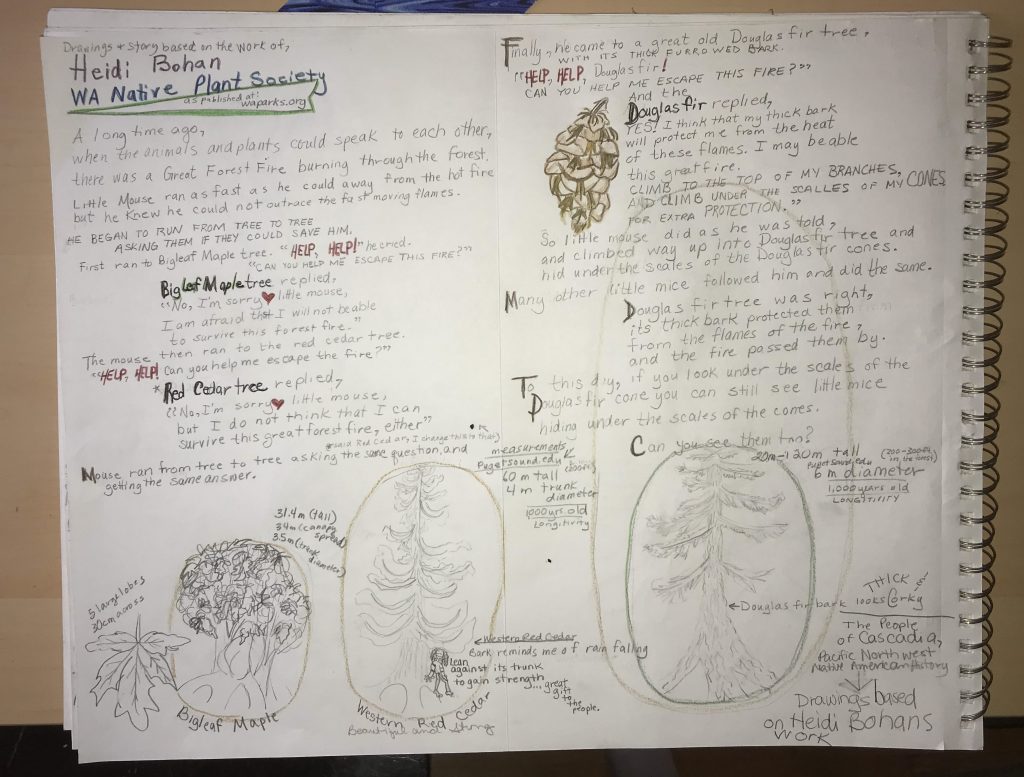 Drawings & Story based on the work of,
Heidi Bohan
WA Native Plant Society
as published at:
waparks.org
A long time ago,
when the animals and plants could speak to each other,
there was a Great Forest Fire burning through the forest.
Little Mouse ran as fast as he could away from the hot fire
but he knew he could not outrace the fast moving flames.
HE BEGAN TO RUN FROM TREE TO TREE
ASKING THEM IF THEY COULD SAVE HIM.
First ran to Bigleaf Maple tree. "HELP, HELP!" he cried.
"CAN YOU HELP ME ESCAPE THIS FIRE?"
Bigleaf Maple tree replied,
"No, I'm sorry little mouse,
I am afraid that I will not be able
to survive this forest fire."
The mouse then ran to the red cedar tree.
"HELP, HELP! Can you help me escape the fire?"
* Red Cedar tree replied,
"No, I'm sorry little mouse,
but I do not think that I can
survive this great forest fire, either"
(said Red Cedar, I change this to that)
Mouse ran from tree to tree asking the same question, and
getting the same answer.
31.4m (tall)
34m (canopy spread)
3.5m (trunk diameter)
5 large lobes
30cm across
Bigleaf Maple
measurements
Pugetsound.edu
60 m tall
4 m trunk
diameter
1000 yrs. old
Longitivity
Western Red Cedar
Bark reminds me of rain falling
Lean
against its trunk
to gain strength
...great
gift
to
the
people.
Western Red Cedar
Beautiful and Strong
Finally, he came to a great old Douglas fir tree,
WITH ITS THICK FURROWED BARK.
"HELP, HELP, Douglas fir!
CAN YOU HELP ME ESCAPE THIS FIRE?"
And the
Douglas fir replied,
YES! I think that my thick bark
will protect me from the heat
of these flames. I may be able
this great fire.
CLIMB TO THE TOP OF MY BRANCHES,
AND CLIMB UNDER THE SCALLES OF MY CONES
FOR EXTRA PROTECTION."
So little mouse did as he was told,
and climbed way up into Douglas fir tree and
hid under the scales of the Douglas fir cones.
Many other little mice followed him and did the same.
Douglas fir tree was right,
its thick bark protected them
from the flames of the fire,
and the fire passed them by.
To this day, if you look under the scales of the
Douglas fir cone you can still see little mice
hiding under the scales of the cones.
Can you see them too?
20m-120m tall
Pugetsound.edu
6 m diameter
1,000 years old
LONGITIVITY
Douglas fir bark looks Corky
THICK
The People
of Cascadia,
Pacific Northwest
Native American History
Drawings based
on Heidi Bohans
work